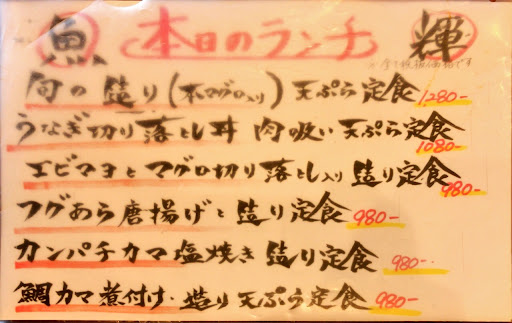 魚 本日のランチ 輝
※全て税抜価格です
旬の造り(本マグロ入り) 天ぷら定食 1280-
うなぎ切り落とし丼 肉の吸い 天ぷら定食 1080-
エビマヨとマグロ切り落とし入り 造り定食 980-
フグあら唐揚げと造り定食 980-
カンパチカマ塩焼き 造り定食 980-
鯛カマ煮付け・造り 天ぷら定食 980-